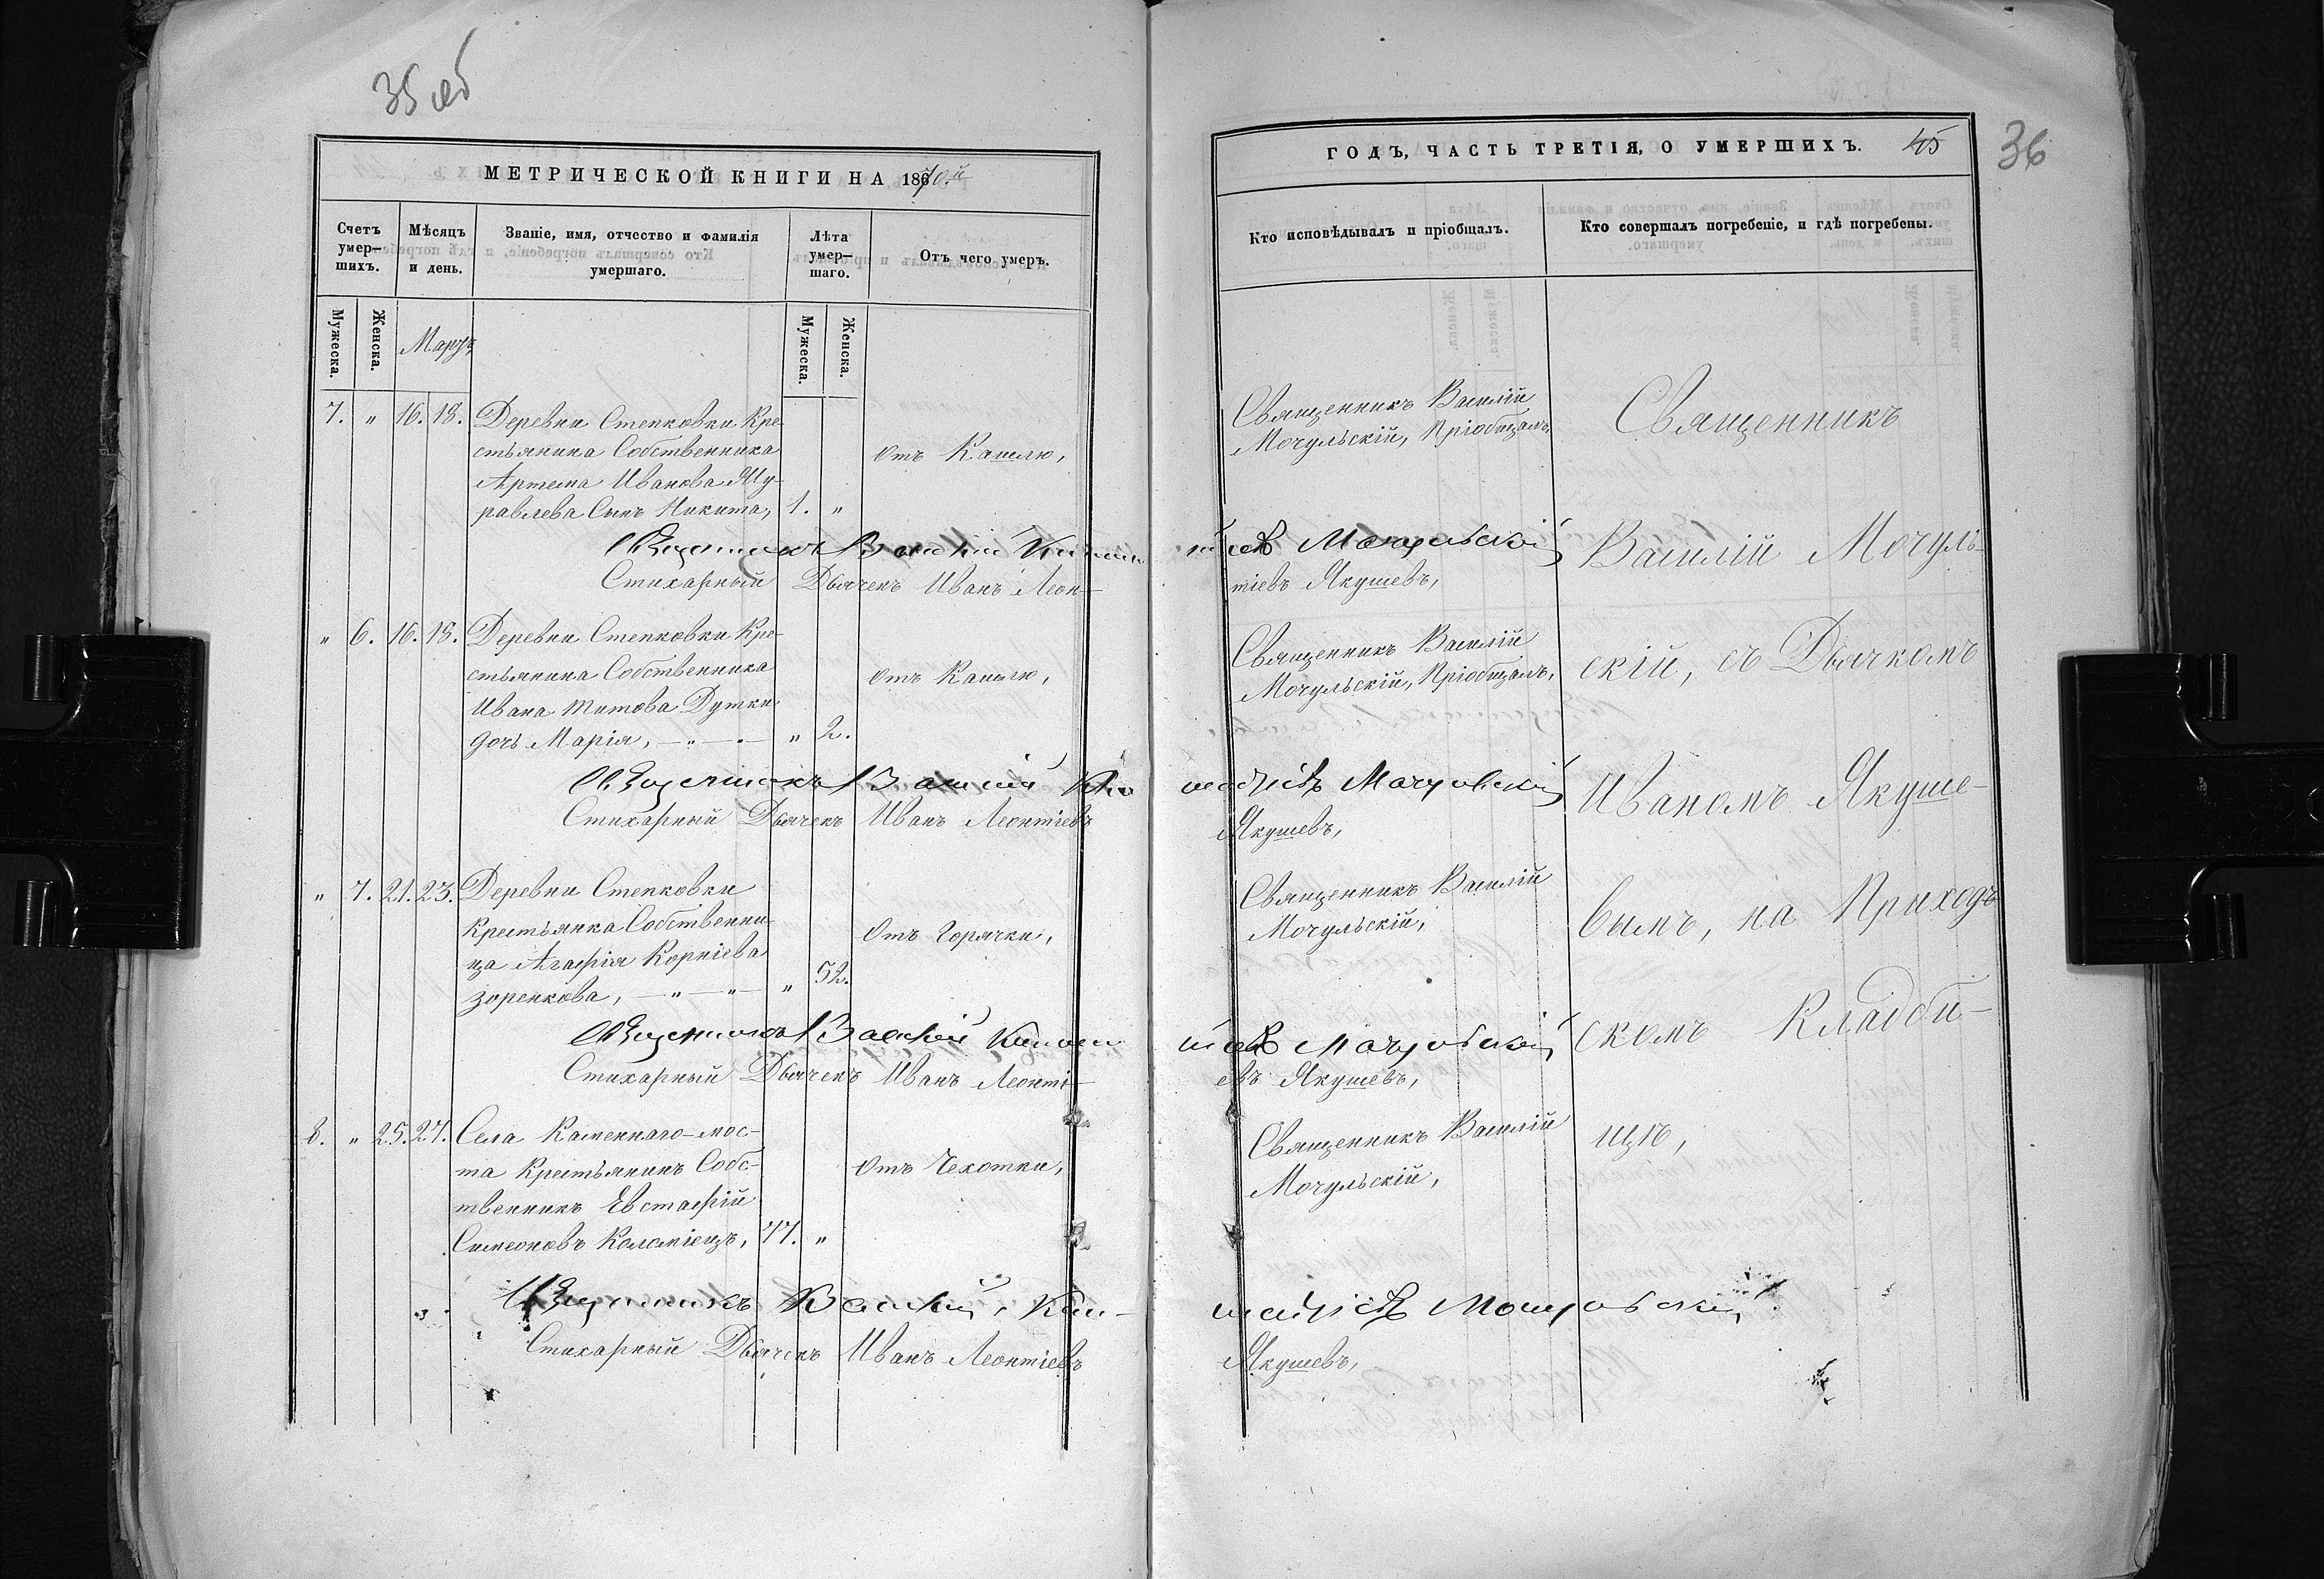 35 об
МЕТРИЧЕСКОЙ КНИГИ НА 1870.й
Счетъ умер-шихъ.
Мѣсяцъ и день.
Званіе, имя, отчество и фамилія умершаго.
Лѣта умер-шаго.
Отъ чего умеръ.
Мужеска.
Женска.
Мартъ
Мужеска.
Женска.
7. " 16. 18. Деревни Степковки Кре-
стьянина Собственника
Артема Иванова Му-
равлева Сынъ Никита, 1. "
отъ Кашлю,
Священникъ Василій
Стихарный Дьячекъ Иванъ Леон-
" 6. 16. 18. Деревни Степковки Кре-
стьянина Собственника
Ивана Титова Дутки
дочь Марія, — " — " — " 2.
отъ Кашлю,
Священникъ Василій
Стихарный Дьячекъ Иванъ Леонтіевъ
" 7. 21. 23. Деревни Степковки
Крестьянка Собственни-
ца Агафія Корніева
Зоренкова, — " — " — " 52.
Отъ Горячки,
Священникъ Василій
Стихарный Дьячекъ Иванъ Леонті-
8. " 25. 27. Села Каменнаго-мос-
та Крестьянинъ Собс-
твенникъ Евстафій
Симеоновъ Коломіецъ, 77. "
Отъ Чехотки,
Священникъ Василій
Стихарный Дьячекъ Иванъ Леонтіевъ
ГОДЪ, ЧАСТЬ ТРЕТІЯ, О УМЕРШИХЪ.
45
36
Кто исповѣдывалъ и пріобщалъ.
Кто совершалъ погребеніе, и гдѣ погребены.
Священникъ Василій
Мочульскій, Пріобщалъ,
Мочульскій
тіевъ Якушевъ,
Священникъ Василій
Мочульскій, Пріобщалъ,
Мочульскій
Якушевъ,
Священникъ Василій
Мочульскій,
Мочульскій
евъ Якушевъ,
Священникъ Василій
Мочульскій,
Мочульскій
Якушевъ,
Священникъ
Василій Мочуль-
скій, съ Дьячкомъ
Иваномъ Якуше-
вымъ, на Приход-
скомъ Кладби-
щѣ,